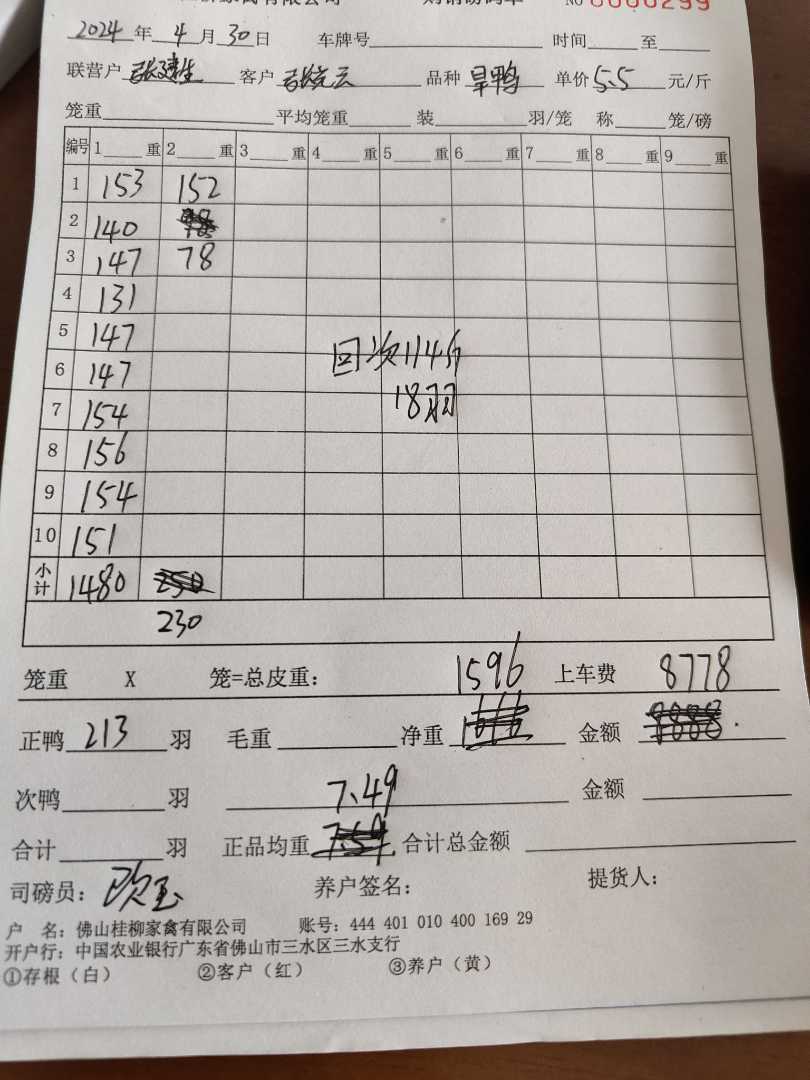 家禽有限公司 购销磅码单 No 0000299
2024年4月30日 车牌号 时间 至
联营户 客户 品种 旱鸭 单价5.5元/斤
笼重 平均笼重 装 羽/笼 称 笼/磅
编号 1 重 2 重 3 重 4 重 5 重 6 重 7 重 8 重 9 重
1 153 152
2 140
3 147 78
4 131
5 147
6 147
7 154
8 156
9 154
10 151
回次114斤
18羽
小计 1480 250
230
笼重 X 笼=总皮重: 1596 上车费 8778
正鸭213羽 毛重 净重 金额
次鸭 羽 7.49 金额
合计 羽 正品均重 7.59 合计总金额
司磅员: 养户签名: 提货人:
户 名: 佛山桂柳家禽有限公司 账号: 444 401 010 400 169 29
开户行: 中国农业银行广东省佛山市三水区三水支行
①存根（白） ②客户（红） ③养户（黄）